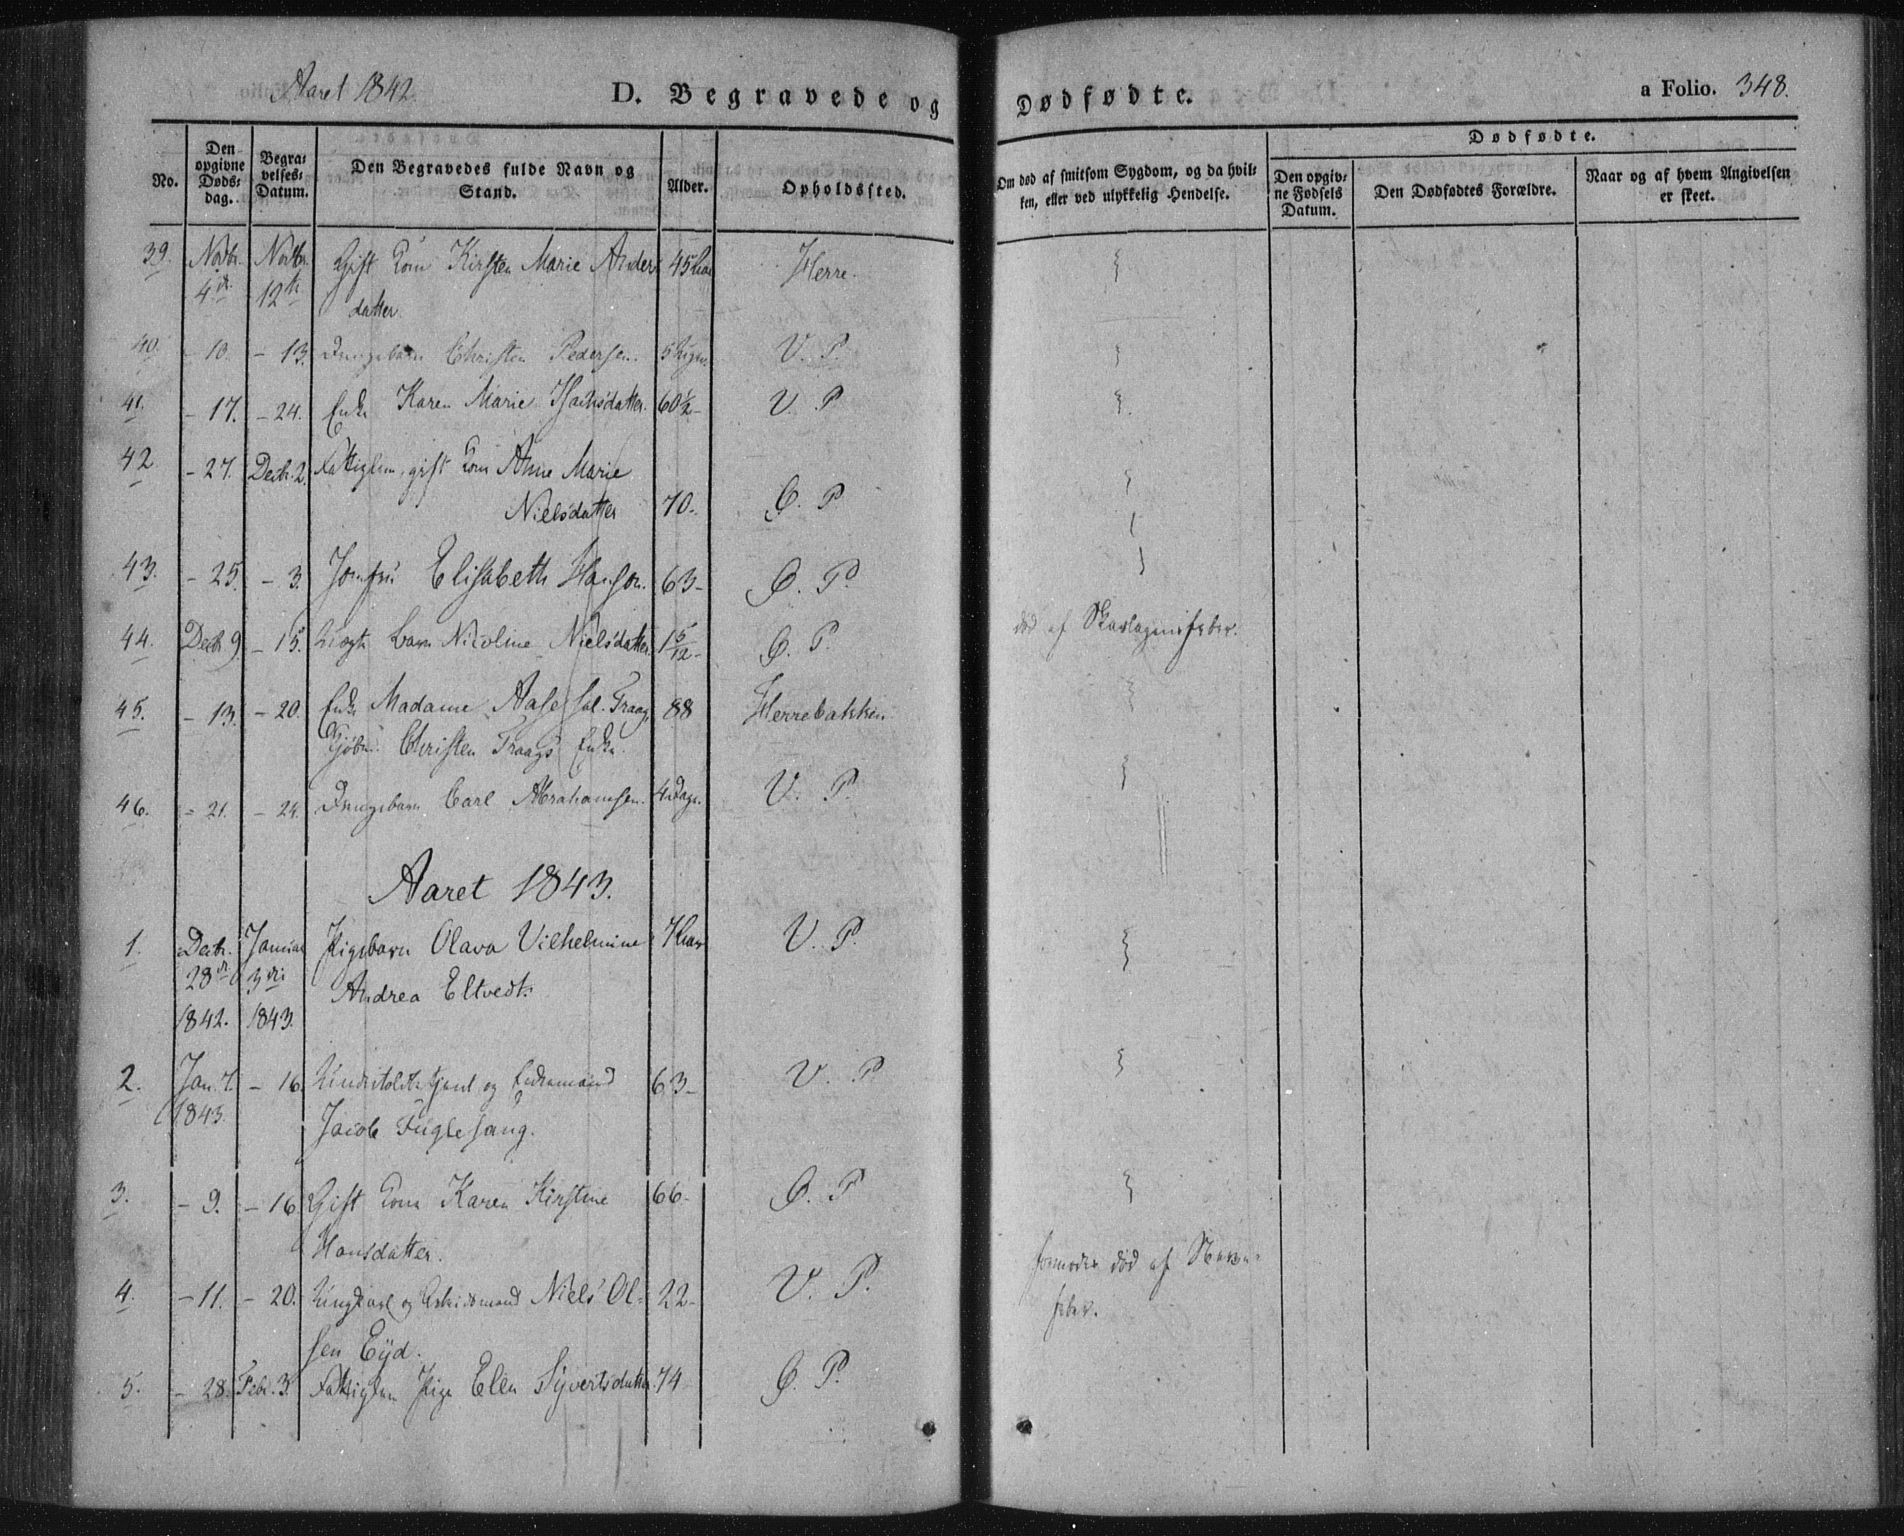 Aaret 1842
D. Begravede og
Dødfødte.
a Folio. 348.
No.
Den opgivne Døds-dag.
Begra-velses-Datum.
Den Begravedes fulde Navn og Stand.
Alder.
Opholdssted.
Om død af smitsom Sygdom, og da hvil-
ken, eller ved ulykkelig Hendelse.
Dødfødte.
Den opgiv-ne Fødsels Datum.
Den Dødfødtes Forældre.
Naar og af hvem Angivelsen
er skeet.
39. Novbr. Novbr. Gift Kone Kirsten Marie Anders 45 Herre.
4de 12te datter.
40. - 10. - 13. Drengebarn Christen Pedersen. 5 V. P.
41. - 17. - 24. Enke Karen Marie Isachsdatter. 60½- V. P
42 - 27. Decbr. 2. Fattiglem, gift Kone Anne Marie
Nielsdatter 70.- Ø. P
43. - 25. - 3. Jomfru Elisabeth Hanson. 63- Ø. P.
44. Decbr 9. - 15. Barn Nicoline Nielsdatter. 1 5/12- Ø. P. død af Skarlagensfeber.
45. - 13. - 20. Enke Madame Aase sal. Traag 88 Herrebakken
Christen Traags Enke.
46. - 21. - 24. Drengebarn Carl Abrahamsen. 4 Dage. V. P.
Aaret 1843.
1. Decbr. Januar Pigebarn Olava Vilhelmine 7 V. P.
28de 3die Andrea Eltvedt.
1842. 1843.
2. Jan. 7. - 16. og Enkemand 63- V. P
1843. Jacob Fuglesang.
3. - 9. - 16. Gift Kone Karen Kirstine 66- Ø. P
Hansdatter.
4. - 11. - 20. Ungkarl og Arbeidsmand Niels Ol- 22- V. P. formodes død af Nerve-
sen Eijd. feber.
5. - 28. Febr. 3. Fattiglem Pige Elen Syvertsdatter. 74 Ø. P.